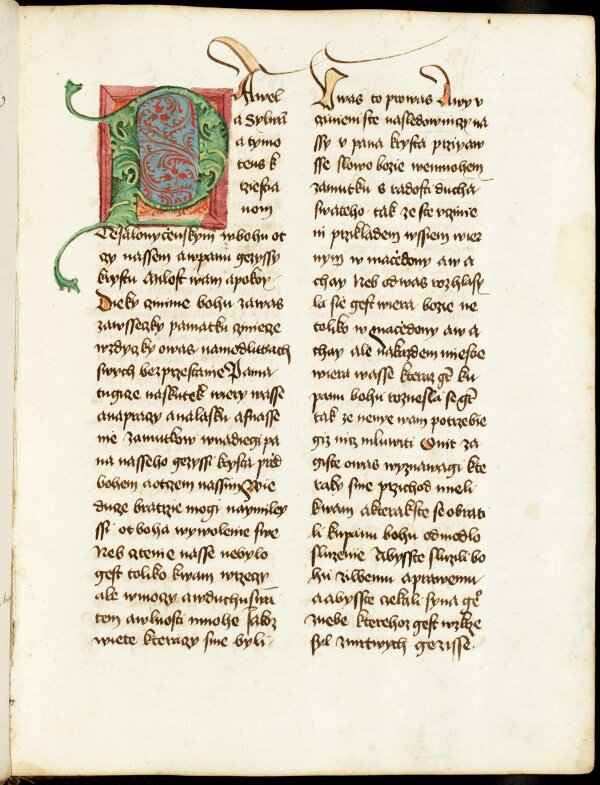 Pawel
a Sylwā
a tymo
teus k
cziesba
nom
Tesalonyczenskym wbohu ot
czy nassem awpanu gezyssy
krystu Anlost wam apokoy
Dieky czinime bohu zawas
zawsseczky pamatku czinieze
wzdyczky owas namodlitbach
swych bezprzestanie Pama
tugicze naskutek wiery wasse
anapraczy analasku asnasse
nie zamutkow wnadiegi pa
na nasseho gezyssi krysta przed
bohem aotczem nassim Wie
duze bratrzie mogi naymiley
ssi ot boha wywolenie swe
Neb cztenie nasse nebylo
gest toliko kwam wrzeczy
ale wmoczy awduchu swā
tem awlnosti mnohe Jakoz
wiete kteraczy sme byli
Uwas to prowas A wy v
czinieni ste nasledowniczy na
ssy v pana krysta przigaw
sse slowo bozie wemnohem
zamutku s radosti ducha
swateho tak ze ste vczinie
ni przikladem wssiem wier
nym w macedony aw a
chay Neb od was rozhlasy
la sie gest wiera bozie ne
toliko w macedony aw a
chay ale nakazdem miestie
wiera wasse kteraz gt ku
panu bohu roznesla se gt
tak ze nenye wam potrzebie
giz nicz mluwiti Onit za
giste owas wyznawagi kte
raky sme przichod mieli
kwam akterakste se obrati
li kupanu bohu odmodlo
sluzenie Abysste sluzili bo
hu ziwemu aprawemu
aabysste czekali syna geº
znebe kterehoz gest wzkrze
syl zmrtwych gezisse